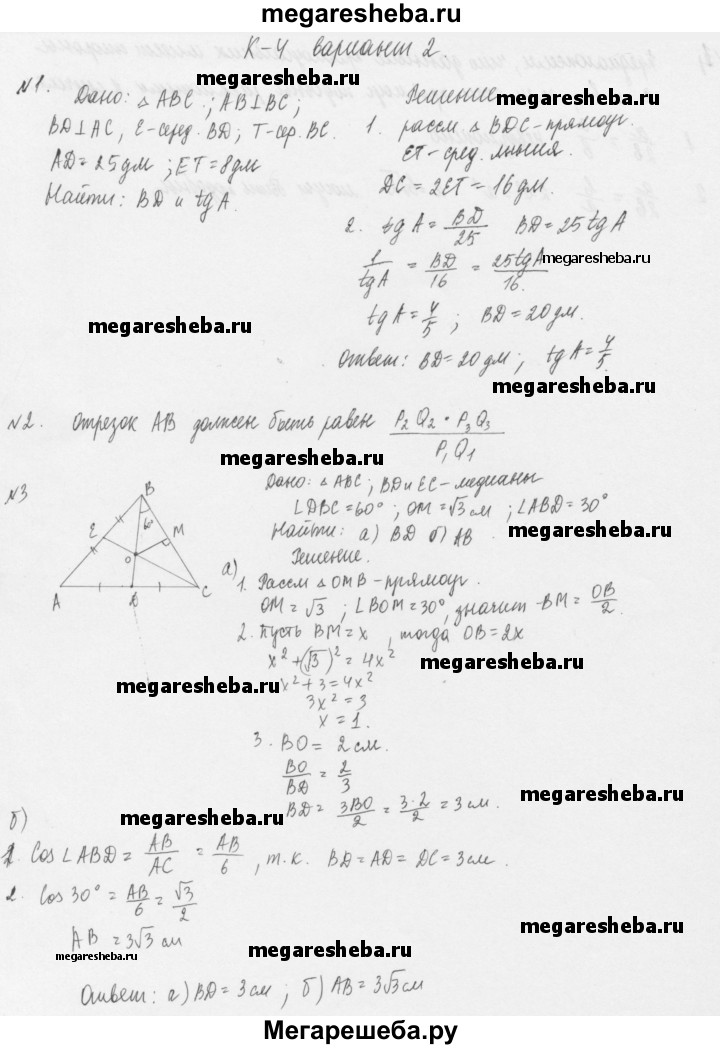 megaresheba.ru
К-4 вариант 2.
№1. Дано: △ABC; AB⊥BC;
BD⊥AC, E-серед. BD; T-сер. BC.
AD=25дм; ET=8дм
Найти: BD и tgA.
megaresheba.ru
Решение
1. рассм △BDC-прямоуг.
ET-сред. линия.
DC=2ET=16дм.
2. tgA = BD/25 BD=25tgA
1/tgA = BD/16 = 25tgA/16.
megaresheba.ru
tgA=4/5; BD=20дм.
megaresheba.ru
Ответ: BD=20дм; tgA=4/5
megaresheba.ru
№2. Отрезок AB должен быть равен P₂Q₂ · P₃Q₃ / P₁Q₁
megaresheba.ru
№3
B
60°
E
M
O
A
D
C
Дано: △ABC; BD и EC-медианы
∠DBC=60°; OM=√3см; ∠ABD=30°
Найти: а) BD б) AB
megaresheba.ru
Решение.
а)
1. Рассм △OMB-прямоуг.
OM=√3; ∠BOM=30°, значит BM=OB/2.
2. Пусть BM=x, тогда OB=2x
x²+(√3)²=4x²
megaresheba.ru
x²+3=4x²
megaresheba.ru
3x²=3
x=1.
3. BO=2см.
BO/BD = 2/3
megaresheba.ru
BD = 3BO/2 = 3·2/2 = 3см.
megaresheba.ru
б)
1. Cos∠ABD = AB/AC = AB/6, т.к. BD=AD=DC=3см.
2. Cos30° = AB/6 = √3/2
megaresheba.ru
AB=3√3 см
megaresheba.ru
megaresheba.ru
Ответ: а) BD=3см; б) AB=3√3см
Мегарешеба.ру